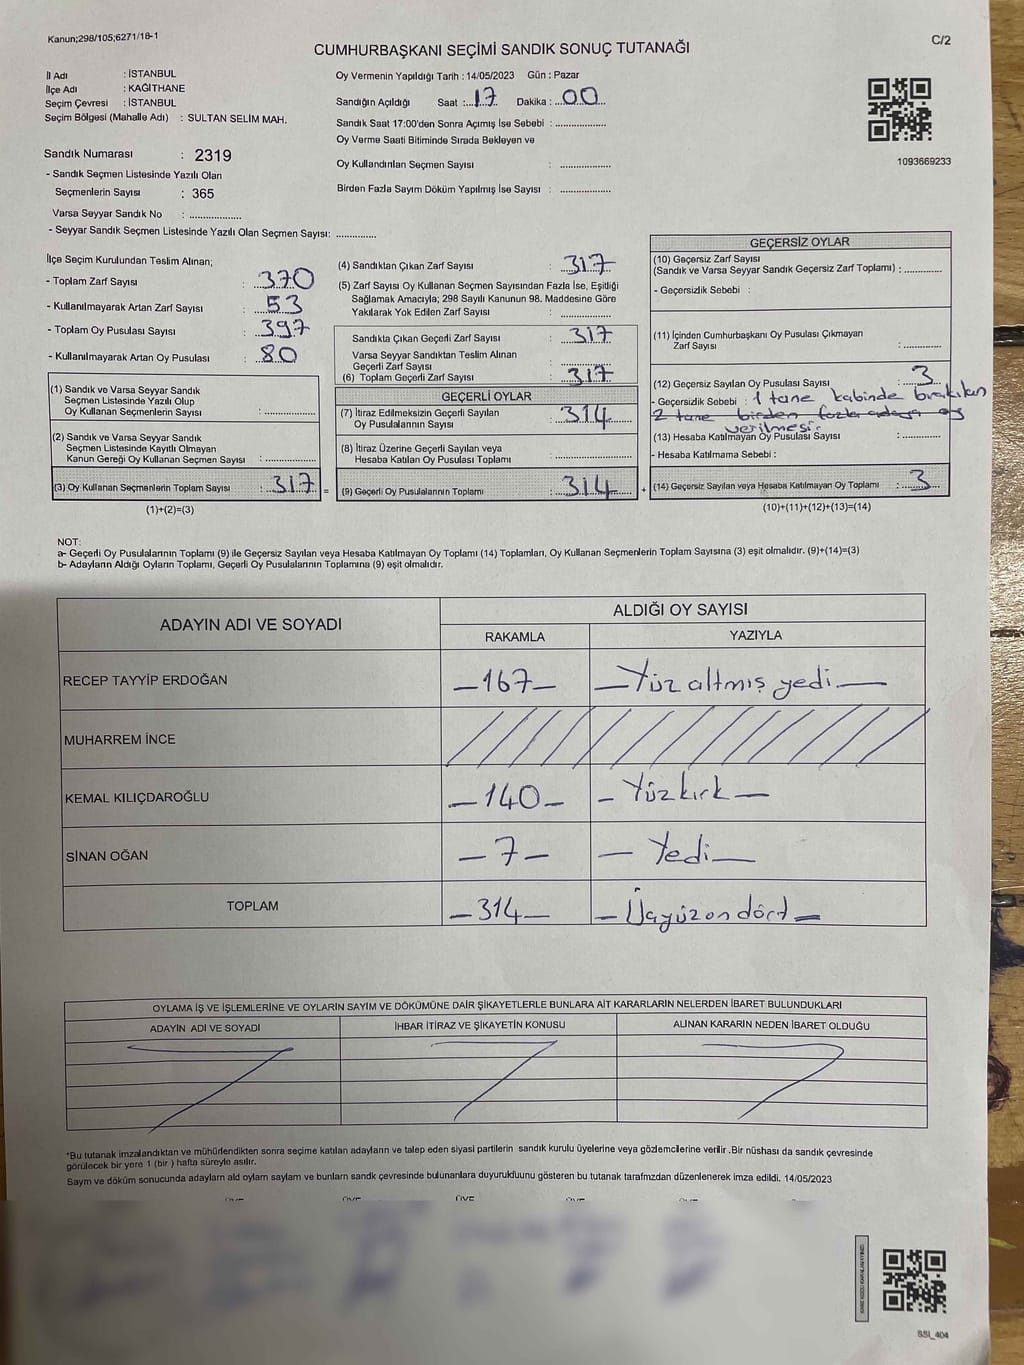 Kanun;298/105;6271/18-1
C/2
CUMHURBAŞKANI SEÇİMİ SANDIK SONUÇ TUTANAĞI
İl Adı : İSTANBUL
İlçe Adı : KAĞITHANE
Seçim Çevresi : İSTANBUL
Seçim Bölgesi (Mahalle Adı) : SULTAN SELİM MAH.
Sandık Numarası : 2319
- Sandık Seçmen Listesinde Yazılı Olan
Seçmenlerin Sayısı : 365
Varsa Seyyar Sandık No : ...................
- Seyyar Sandık Seçmen Listesinde Yazılı Olan Seçmen Sayısı: ...............
Oy Vermenin Yapıldığı Tarih : 14/05/2023 Gün : Pazar
Sandığın Açıldığı Saat : 17 Dakika : 00
Sandık Saat 17:00'den Sonra Açımış İse Sebebi : ...................
Oy Verme Saati Bitiminde Sırada Bekleyen ve
Oy Kullandırılan Seçmen Sayısı : ...................
Birden Fazla Sayım Döküm Yapılmış İse Sayısı : ...................
1093669233
İlçe Seçim Kurulundan Teslim Alınan;
- Toplam Zarf Sayısı : 370
- Kullanılmayarak Artan Zarf Sayısı : 53
- Toplam Oy Pusulası Sayısı : 397
- Kullanılmayarak Artan Oy Pusulası : 80
(1) Sandık ve Varsa Seyyar Sandık
Seçmen Listesinde Yazılı Olup
Oy Kullanan Seçmenlerin Sayısı : ...................
(2) Sandık ve Varsa Seyyar Sandık
Seçmen Listesinde Kayıtlı Olmayan
Kanun Gereği Oy Kullanan Seçmen Sayısı : ...................
(3) Oy Kullanan Seçmenlerin Toplam Sayısı : 317 =
(1)+(2)=(3)
(4) Sandıktan Çıkan Zarf Sayısı : 317
(5) Zarf Sayısı Oy Kullanan Seçmen Sayısından Fazla İse, Eşitliği
Sağlamak Amacıyla; 298 Sayılı Kanunun 98. Maddesine Göre
Yakılarak Yok Edilen Zarf Sayısı : ...................
Sandıkta Çıkan Geçerli Zarf Sayısı : 317
Varsa Seyyar Sandıktan Teslim Alınan
Geçerli Zarf Sayısı : ...................
(6) Toplam Geçerli Zarf Sayısı : 317
GEÇERLİ OYLAR
(7) İtiraz Edilmeksizin Geçerli Sayılan
Oy Pusulalarının Sayısı : 314
(8) İtiraz Üzerine Geçerli Sayılan veya
Hesaba Katılan Oy Pusulası Toplamı : ...................
(9) Geçerli Oy Pusulalarının Toplamı : 314 +
GEÇERSİZ OYLAR
(10) Geçersiz Zarf Sayısı
(Sandık ve Varsa Seyyar Sandık Geçersiz Zarf Toplamı) : ............
- Geçersizlik Sebebi :
(11) İçinden Cumhurbaşkanı Oy Pusulası Çıkmayan
Zarf Sayısı : ............
(12) Geçersiz Sayılan Oy Pusulası Sayısı : 3
- Geçersizlik Sebebi : 1 tane kabinde bırakılan
2 tane birden fazla adaya oy
verilmesi.
(13) Hesaba Katılmayan Oy Pusulası Sayısı : ............
- Hesaba Katılmama Sebebi :
(14) Geçersiz Sayılan veya Hesaba Katılmayan Oy Toplamı : 3
(10)+(11)+(12)+(13)=(14)
NOT:
a- Geçerli Oy Pusulalarının Toplamı (9) ile Geçersiz Sayılan veya Hesaba Katılmayan Oy Toplamı (14) Toplamları, Oy Kullanan Seçmenlerin Toplam Sayısına (3) eşit olmalıdır. (9)+(14)=(3)
b- Adayların Aldığı Oyların Toplamı, Geçerli Oy Pusulalarının Toplamına (9) eşit olmalıdır.
ADAYIN ADI VE SOYADI
ALDIĞI OY SAYISI
RAKAMLA YAZIYLA
RECEP TAYYİP ERDOĞAN -167- -Yüz altmış yedi-
MUHARREM İNCE
KEMAL KILIÇDAROĞLU -140- -Yüzkırk-
SİNAN OĞAN -7- -Yedi-
TOPLAM -314- -Üçyüzondört-
OYLAMA İŞ VE İŞLEMLERİNE VE OYLARIN SAYIM VE DÖKÜMÜNE DAİR ŞİKAYETLERLE BUNLARA AİT KARARLARIN NELERDEN İBARET BULUNDUKLARI
ADAYIN ADI VE SOYADI İHBAR İTİRAZ VE ŞİKAYETİN KONUSU ALINAN KARARIN NEDEN İBARET OLDUĞU
*Bu tutanak imzalandıktan ve mühürlendikten sonra seçime katılan adayların ve talep eden siyasi partilerin sandık kurulu üyelerine veya gözlemcilerine verilir .Bir nüshası da sandık çevresinde
görülecek bir yere 1 (bir ) hafta süreyle asılır.
Sayım ve döküm sonucunda adayların ald oylarn saylam ve bunlarn sandk çevresinde bulunanlara duyurukfuunu gösteren bu tutanak tarafmzdan düzenlenerek imza edildi. 14/05/2023
ÜYE
SSI_404